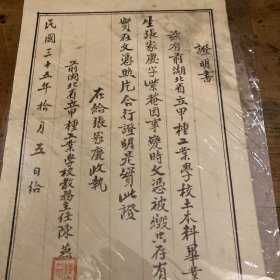 證明書
茲有前湖北省立甲種工業學校土木科畢業
生張家慶字紫菴因事變時文憑被燬只存有
實在文憑照片合行證明是實此證
右給張家慶收執
前湖北省立甲種工業學校教務主任陳
民國三十五年拾月五日給